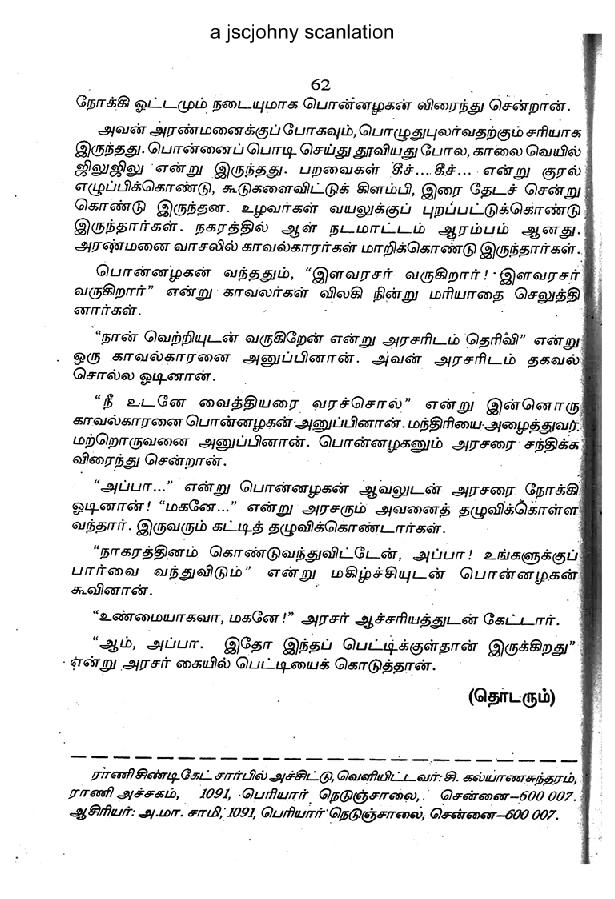 a jscjohny scanlation
62
நோக்கி ஓட்டமும் நடையுமாக பொன்னழகன் விரைந்து சென்றான்.
அவன் அரண்மனைக்குப்போகவும், பொழுதுபுலர்வதற்கும் சரியாக
இருந்தது. பொன்னைப் பொடி செய்து தூவியதுபோல, காலை வெயில்
ஜிலுஜிலு என்று இருந்தது. பறவைகள் கீச்... கீச்... என்று குரல்
எழுப்பிக்கொண்டு, கூடுகளைவிட்டுக் கிளம்பி, இரை தேடச் சென்று
கொண்டு இருந்தன. உழவர்கள் வயலுக்குப் புறப்பட்டுக்கொண்டு
இருந்தார்கள். நகரத்தில் ஆள் நடமாட்டம் ஆரம்பம் ஆனது.
அரண்மனை வாசலில் காவல்காரர்கள் மாறிக்கொண்டு இருந்தார்கள்.
பொன்னழகன் வந்ததும், “இளவரசர் வருகிறார்! இளவரசர்
வருகிறார்” என்று காவலர்கள் விலகி நின்று மரியாதை செலுத்தி
னார்கள்.
“நான் வெற்றியுடன் வருகிறேன் என்று அரசரிடம் தெரிவி” என்று
ஒரு காவல்காரனை அனுப்பினான். அவன் அரசரிடம் தகவல்
சொல்ல ஓடினான்.
“நீ உடனே வைத்தியரை வரச்சொல்” என்று இன்னொரு
காவல்காரனை பொன்னழகன் அனுப்பினான். மந்திரியை அழைத்துவர,
மற்றொருவனை அனுப்பினான். பொன்னழகனும் அரசரை சந்திக்க
விரைந்து சென்றான்.
“அப்பா...” என்று பொன்னழகன் ஆவலுடன் அரசரை நோக்கி
ஓடினான்! “மகனே...” என்று அரசரும் அவனைத் தழுவிக்கொள்ள
வந்தார். இருவரும் கட்டித் தழுவிக்கொண்டார்கள்.
“நாகரத்தினம் கொண்டுவந்துவிட்டேன், அப்பா! உங்களுக்குப்
பார்வை வந்துவிடும்” என்று மகிழ்ச்சியுடன் பொன்னழகன்
கூவினான்.
“உண்மையாகவா, மகனே!” அரசர் ஆச்சரியத்துடன் கேட்டார்.
“ஆம், அப்பா. இதோ இந்தப் பெட்டிக்குள்தான் இருக்கிறது”
என்று அரசர் கையில் பெட்டியைக் கொடுத்தான்.
(தொடரும்)
ராணிகிண்டிகேட் சார்பில் அச்சிட்டு, வெளியிட்டவர்: கி. கல்யாணசுந்தரம்,
ராணி அச்சகம், 1091, பெரியார் நெடுஞ்சாலை, சென்னை–600 007.
ஆசிரியர்: அ.மா. சாமி, 1091, பெரியார் நெடுஞ்சாலை, சென்னை–600 007.